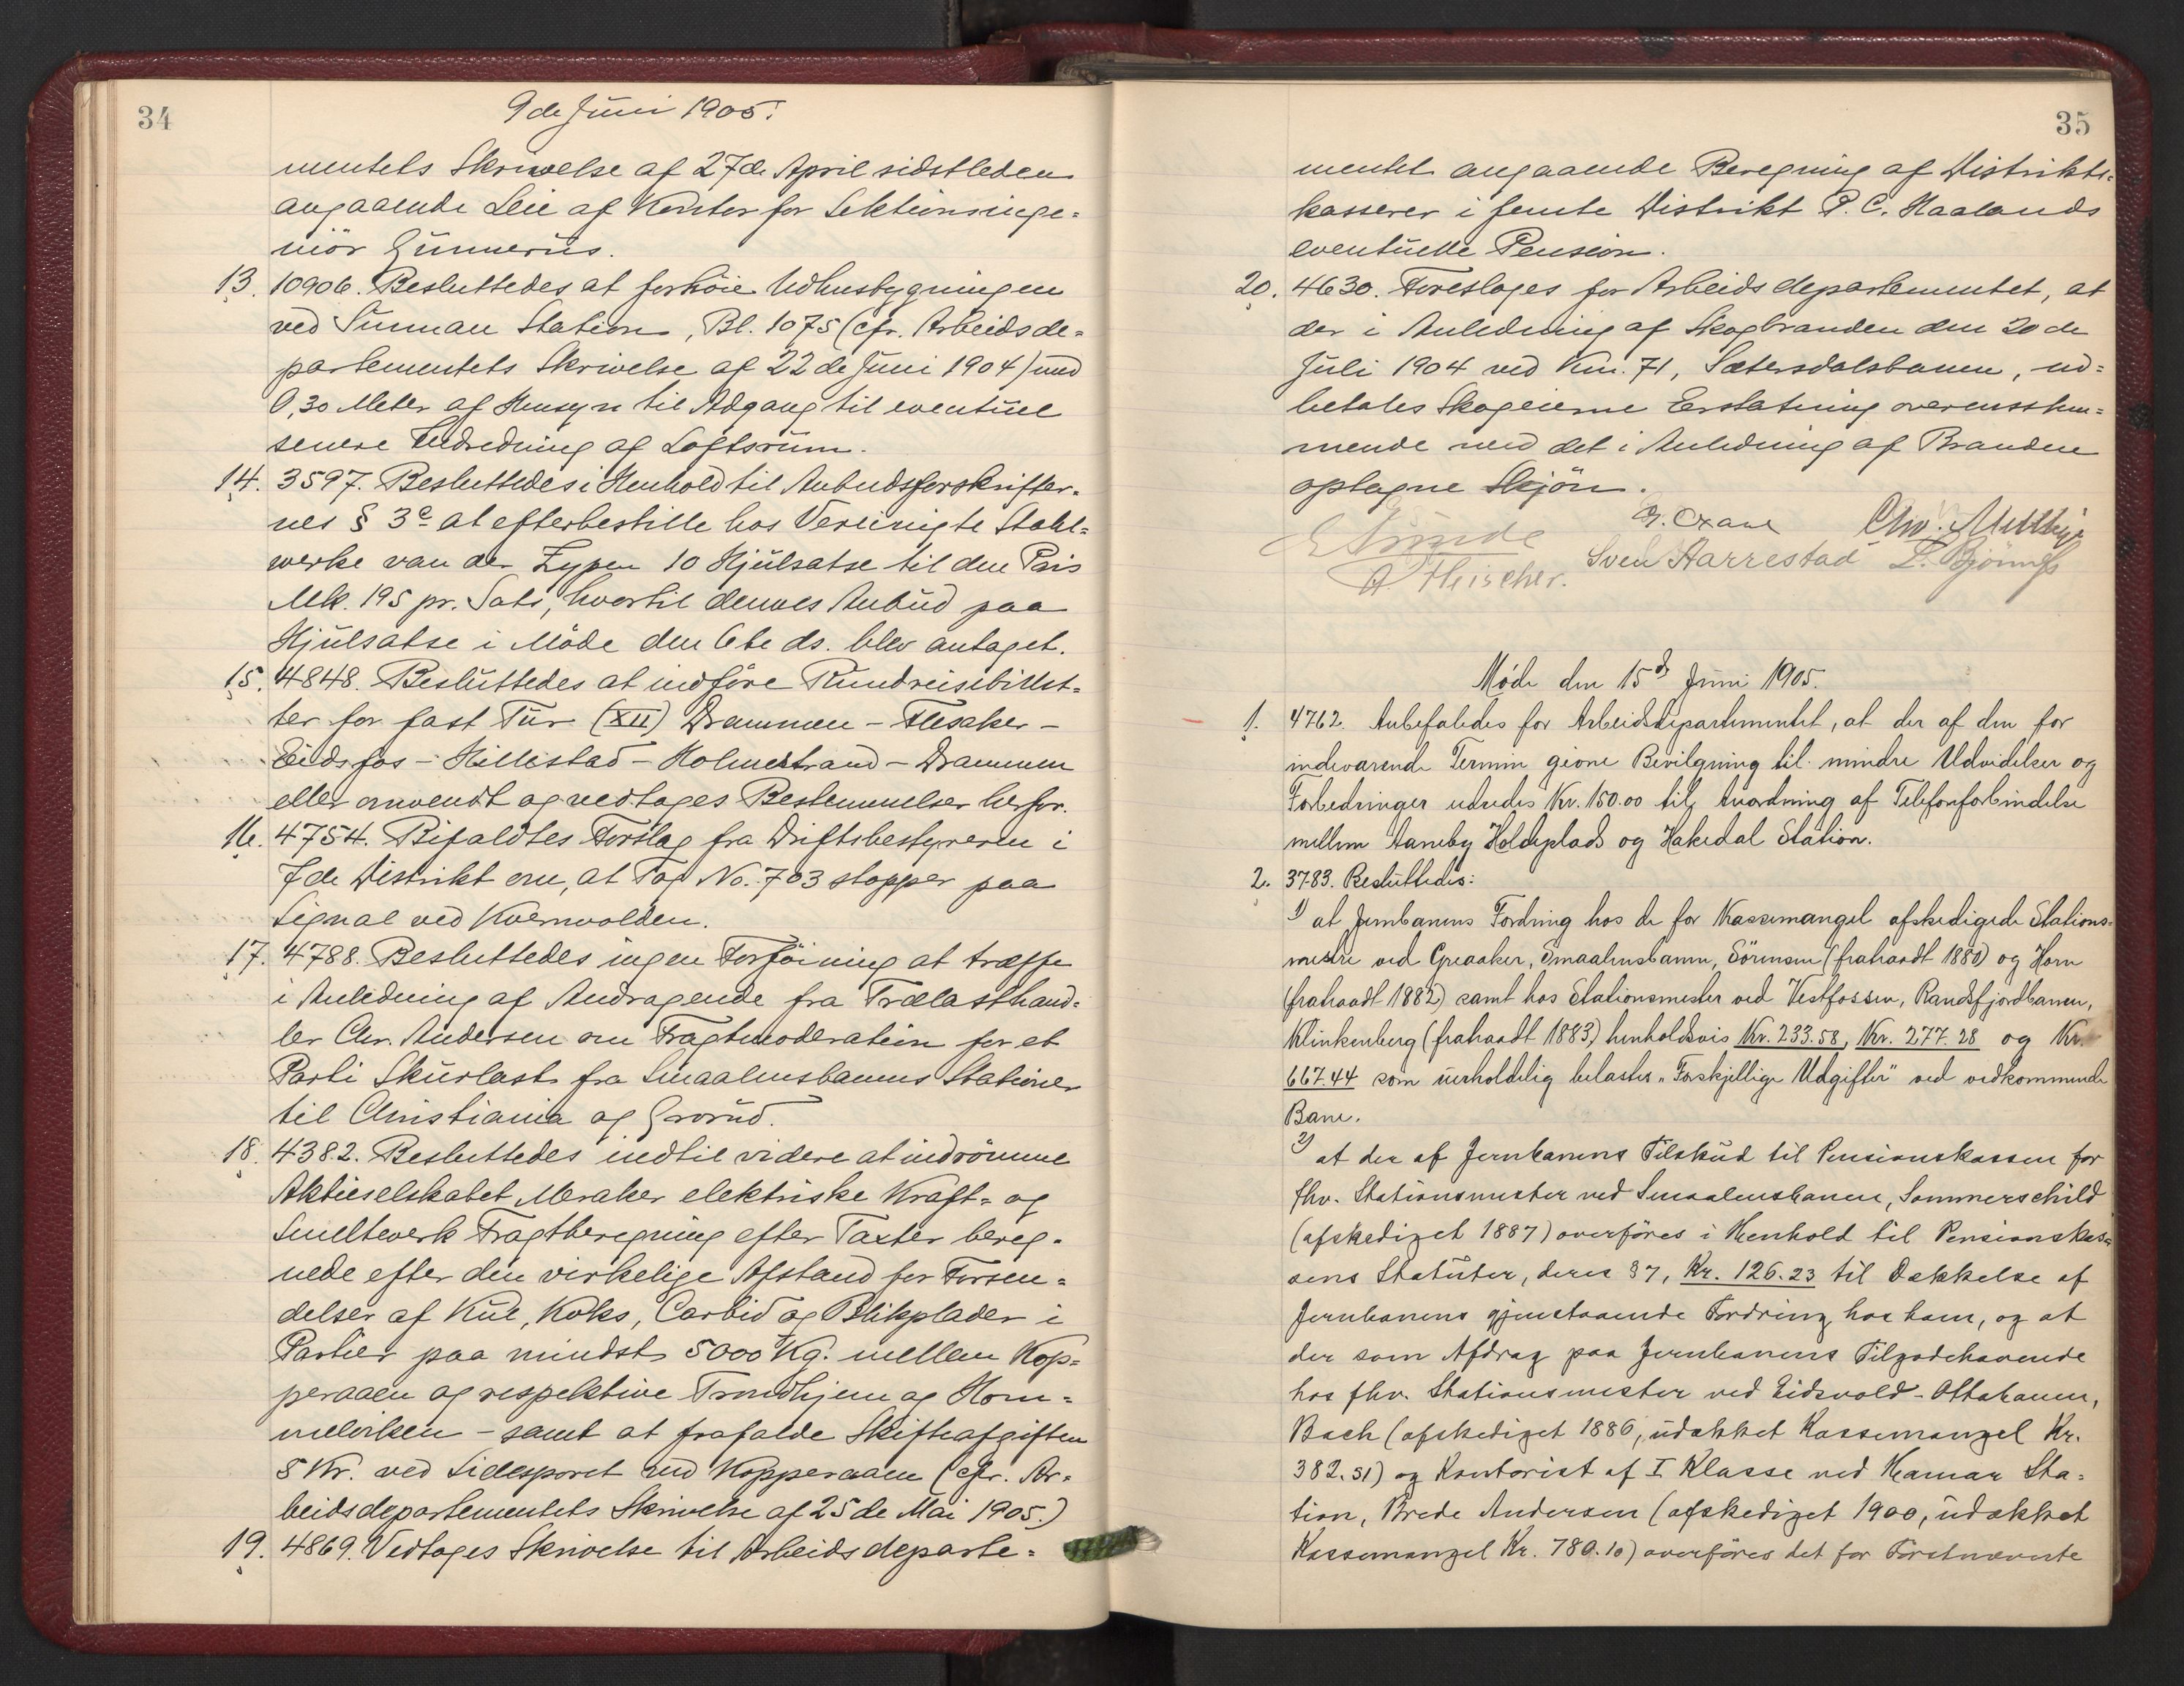 34
9de Juni 1905.
mentets Skrivelse af 27de April sidstleden
angaaende Leie af Kontor for Sektionsinge=
niör Gunnerus.
13. 10906. Besluttedes at forhöie Udhusbygningen
ved Sunnan Station, Bl. 1075 (cfr. Arbeidsde=
partementets Skrivelse af 22de Juni 1904) med
0,30 Meter af Hensyn til Adgang til eventuel
senere Indredning af Loftsrum.
14. 3597. Besluttedes i Henhold til Anbudsforskrifter=
nes § 3e at efterbestille hos Vereinigte Stahl=
werke van der Zypen 10 Hjulsatse til den Pris
Mk. 195 pr. Sats, hvortil dennes Anbud paa
Hjulsatse i Möde den 6te ds. blev antaget.
15. 4848. Besluttedes at indföre Rundreisebillet=
ter for fast Tur (XII) Drammen – Flesaker –
Eidsfos – Hillestad – Holmestrand – Drammen
eller omvendt og vedtoges Bestemmelser herfor.
16. 4754. Bifaldtes Forslag fra Driftsbestyreren i
7de Distrikt om, at Tog No. 703 stopper paa
Signal ved Kvernvolden.
17. 4788. Besluttedes ingen Forföining at træffe
i Anledning af Andragende fra Trælasthand=
ler Chr. Andersen om Fragtmoderation for et
Parti Skurlast fra Smaalensbanens Stationer
til Christiania og Grorud.
18. 4382. Besluttedes indtil videre at indrömme
Aktieselskabet Meraker elektriske Kraft= og
Smelteverk Fragtberegning efter Taxter bereg=
nede efter den virkelige Afstand for Forsen=
delser af Kul, Koks, Carbid og Blikplader i
Partier paa mindst 5000 Kg. mellem Kop=
peraaen og respektive Trondhjem og Hom=
melviken – samt at frafalde Skifteafgiften
5 Kr. ved Sidesporet ved Kopperaaen (cfr. Ar=
beidsdepartementets Skrivelse af 25de Mai 1905.)
19. 4869. Vedtoges Skrivelse til Arbeidsdeparte=
35
mentet angaaende Beregning af Distrikts=
kasserer i femte Distrikt P. C. Haalands
eventuelle Pension.
20. 4630. Foresloges for Arbeidsdepartementet, at
der i Anledning af Skogbranden den 20de
Juli 1904 ved Km. 71, Sætersdalsbanen, ud=
betales Skogeierne Erstatning overensstem=
mende med det i Anledning af Branden
optagne Skjön.
E Sunde
G. Crane
Chr. Mellbye
A Fleischer.
Sven Aarrestad
Möde den 15de Juni 1905.
1. 4762. Anbefaledes for Arbeidsdepartementet, at der af den for
indeværende Termin givne Bevilgning til mindre Udvidelser og
Forbedringer udredes Kr. 150.00 til Anordning af Telefonforbindelse
mellem Aaneby Holdeplads og Hakedal Station.
2. 3783. Besluttedes:
1) at Jernbanens Fordring hos de for Kassemangel afskedigede Stations=
mestre ved Greaaker, Smaalensbanen, Sörensen (fratraadt 1880) og Horn
(fratraadt 1882) samt hos Stationsmester ved Vestfossen, Randsfjordbanen,
Klinkenberg (fratraadt 1883) henholdsvis Kr. 233.58, Kr. 277.28 og Kr.
667.44 som uerholdelig belastes „Forskjellige Udgifter“ ved vedkommende
Bane.
2) at der af Jernbanens Tilskud til Pensionskassen for
fhv. Stationsmester ved Smaalensbanen, Sommerschild
(afskediget 1887) overföres i Henhold til Pensionskas=
sens Statuter, deres § 7, Kr. 126.23 til Dækkelse af
Jernbanens gjenstaaende Fordring hos ham, og at
der som Afdrag paa Jernbanens Tilgodehavende
hos fhv. Stationsmester ved Eidsvold-Ottabanen,
Bach (afskediget 1886, udækket Kassemangel Kr.
382.51) og Kontorist af I Klasse ved Hamar Sta=
tion, Brede Andersen (afskediget 1900, udækket
Kassemangel Kr. 780.10) overföres det for Förstnævnte